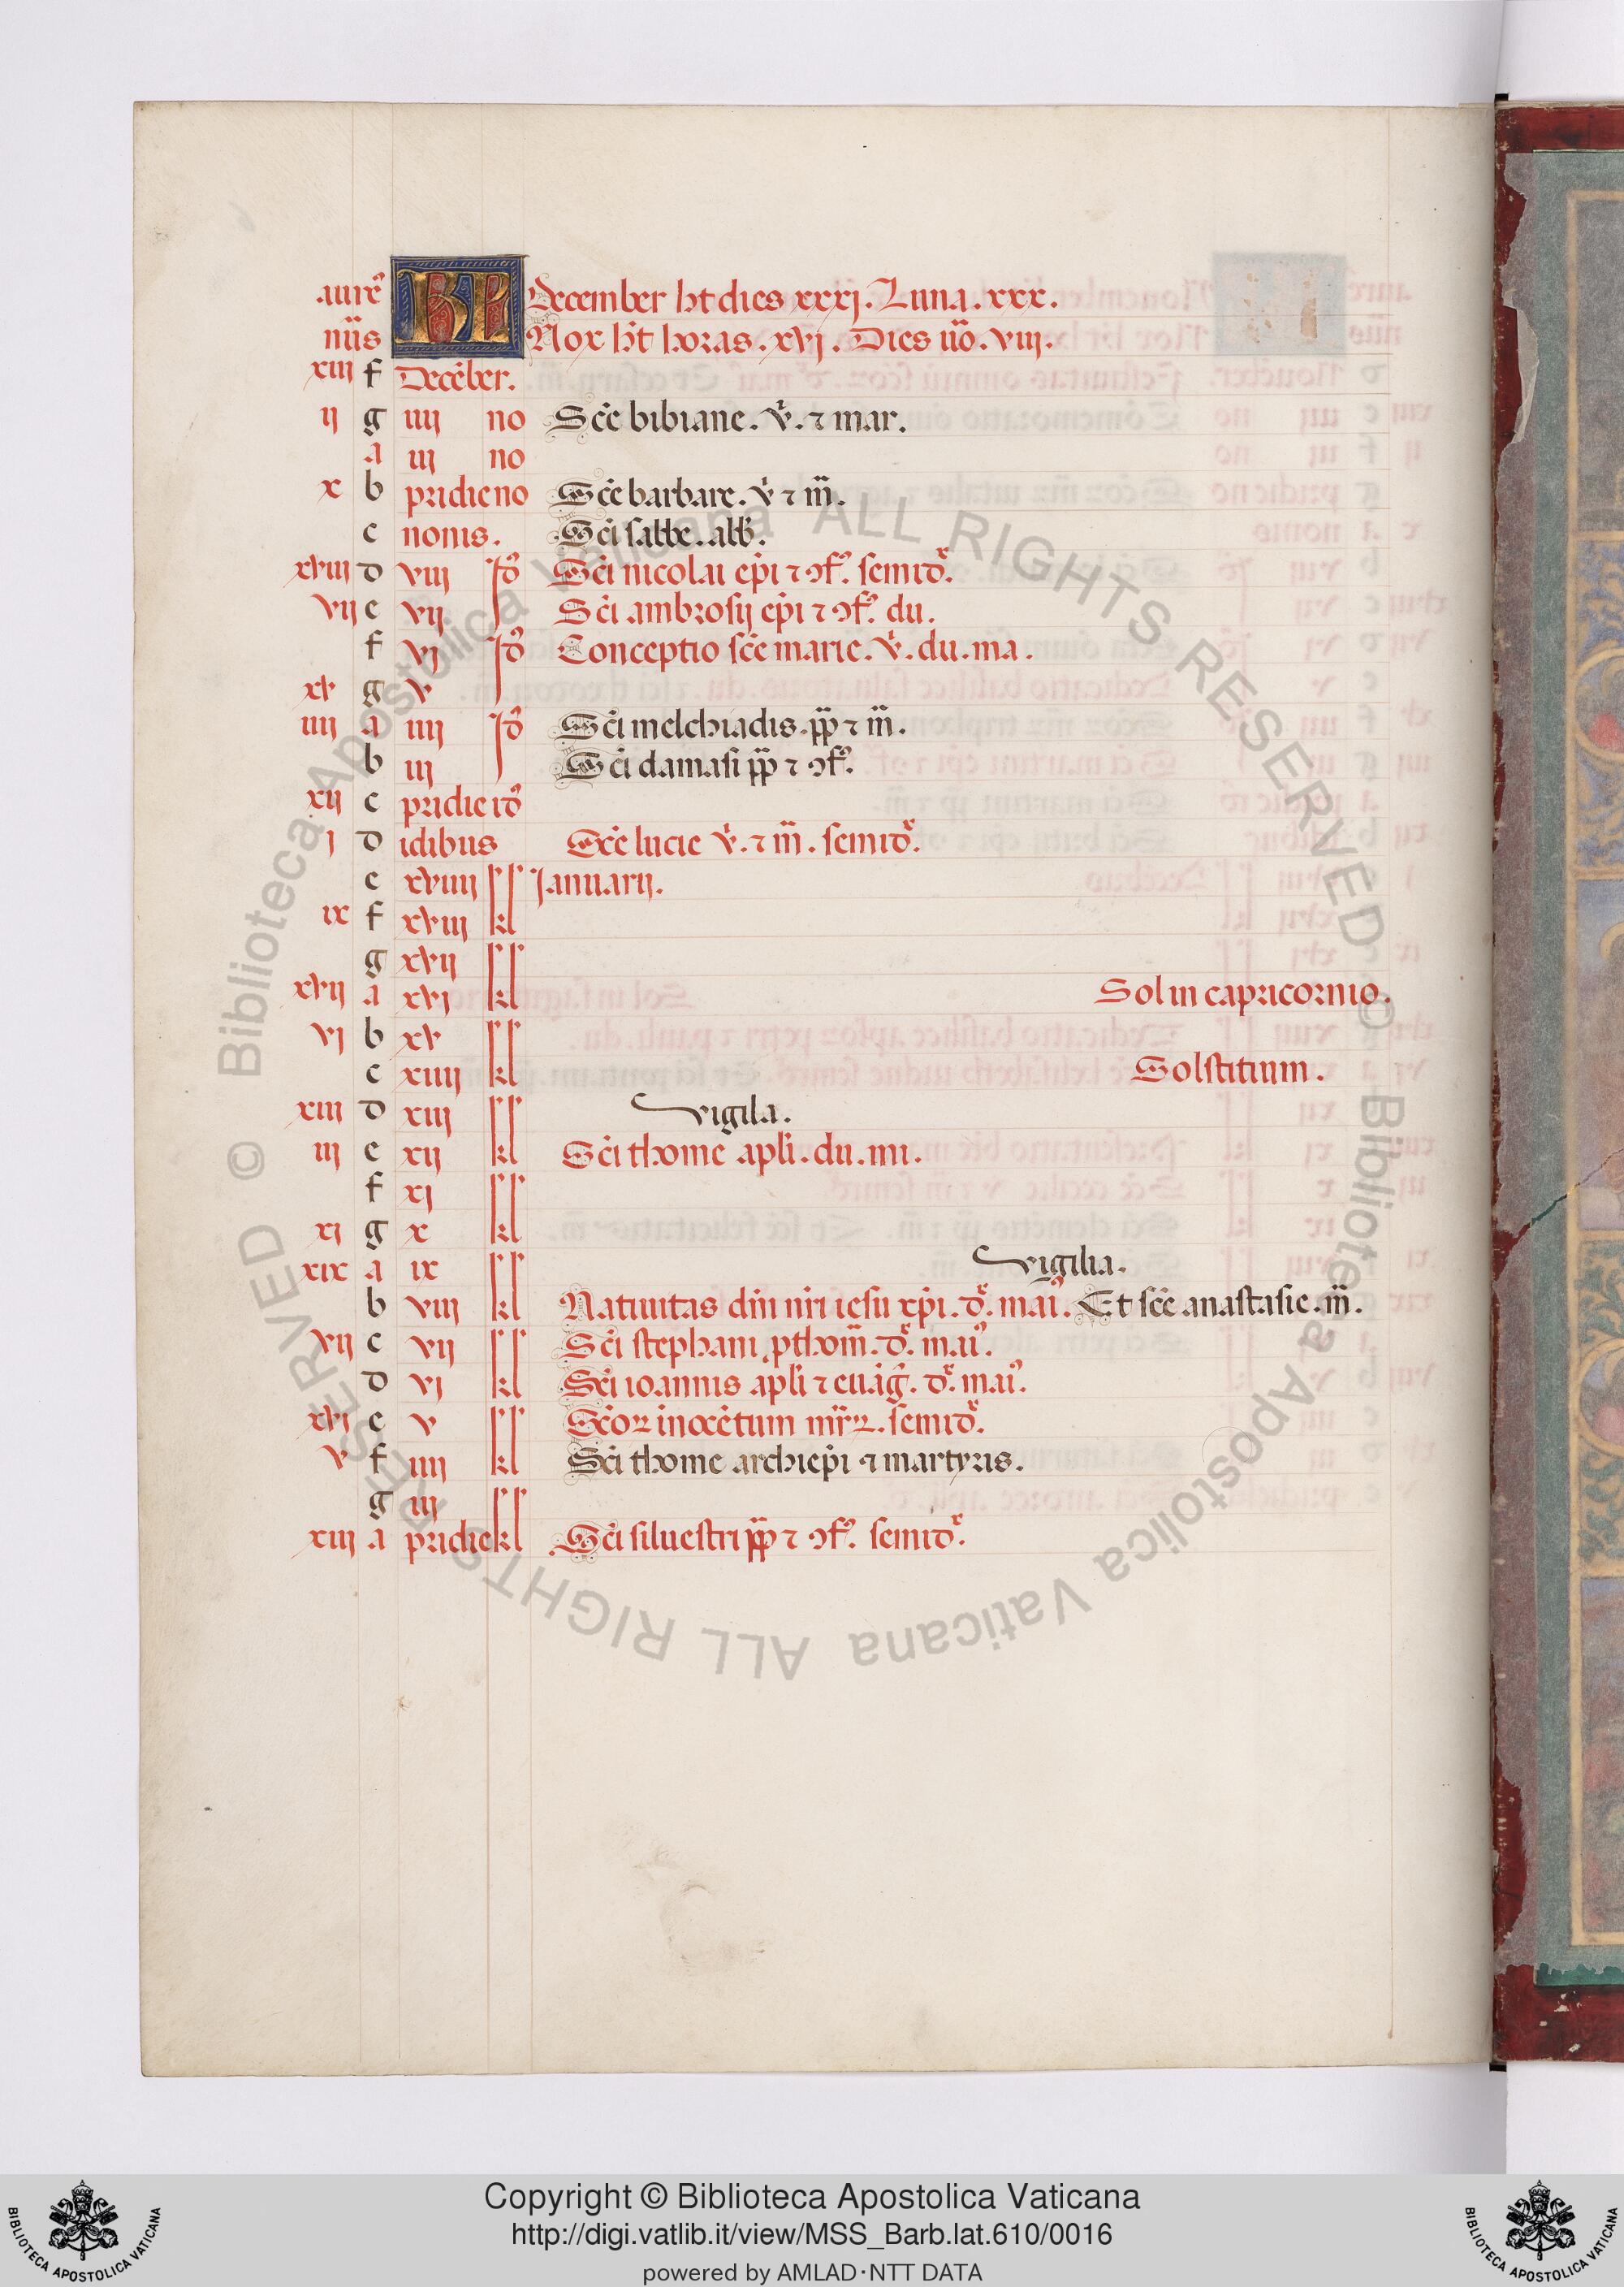 aure᷒ KL December ht dies xxxj. Luna. xxx.
nũs Nox ht horas. xvj. Dies uo. viij.
xiij f Deceber.
ij g iiij no Sce bibiane. v. ⁊ mar.
a iij no
x b pridie no Sce barbare. v ⁊ m̃.
c nonis. Sci sabbe. abb.
xviij d viij Id᷒ Sci nicolai epi ⁊ ɔf᷒. semid.
vij e vij Sci ambrosij epi ⁊ ɔf᷒. du.
f vj Id᷒ Conceptio sce marie. v. du. ma.
xv g v
iiij a iiij Id᷒ Sci melchiadis. pp ⁊ m̃.
b iij Sci damasi pp ⁊ ɔf᷒.
xij c pridie id᷒
j d idibus Sce lucie v. ⁊ m̃. semid.
e xviiij kl Ianuarij.
ix f xviij kl
g xvij kl
xvij a xvj kl Sol in capricornio.
vj b xv kl
c xiiij kl Solstitium.
xiiij d xiij kl vigila.
iij e xij kl Sci thome apli. du. mi.
f xj kl
xj g x kl
xix a ix kl vigilia.
b viij kl Natiuitas dni nri iesu xpi. d. mai᷒. Et sce anastasie. m̃.
vij c vij kl Sci stephani pthom̃. d. mai᷒.
d vj kl Sci ioannis apli ⁊ euãg. d. mai᷒.
xvj e v kl Scoꝝ inocetum mrꝝ. semid.
v f iiij kl Sci thome archiepi ⁊ martyris.
g iij
xiij a pridie kl Sci siluestri pp ⁊ ɔf᷒. semid.
© Biblioteca Apostolica Vaticana ALL RIGHTS RESERVED © Biblioteca Apostolica Vaticana ALL RIGHTS RESERVED
BIBLIOTECA APOSTOLICA VATICANA
Copyright © Biblioteca Apostolica Vaticana
http://digi.vatlib.it/view/MSS_Barb.lat.610/0016
powered by AMLAD·NTT DATA
BIBLIOTECA APOSTOLICA VATICANA